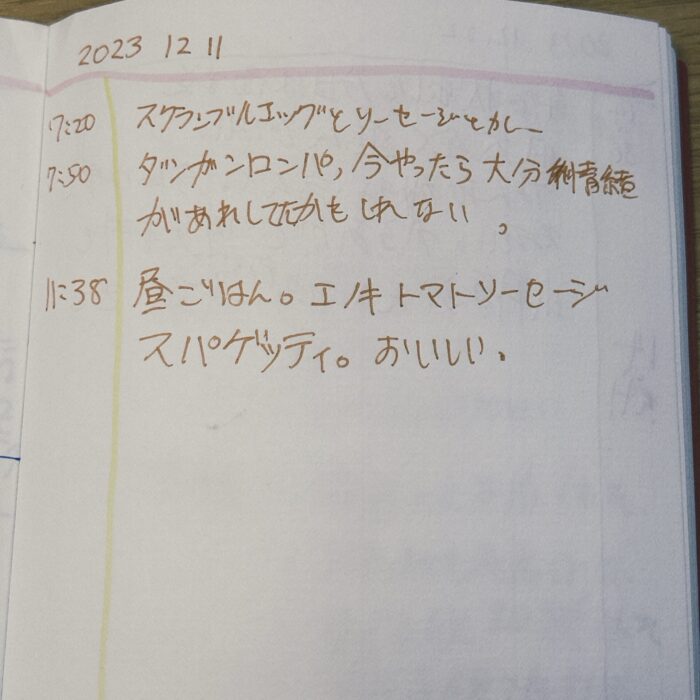 2023 12 11
7:20 スクランブルエッグとソーセージとカレー
7:50 ダンガンロンパ、今やったら大分
があれしてたかもしれない。
11:38 昼ごはん。エノキトマトソーセージ
スパゲッティ。おいしい。